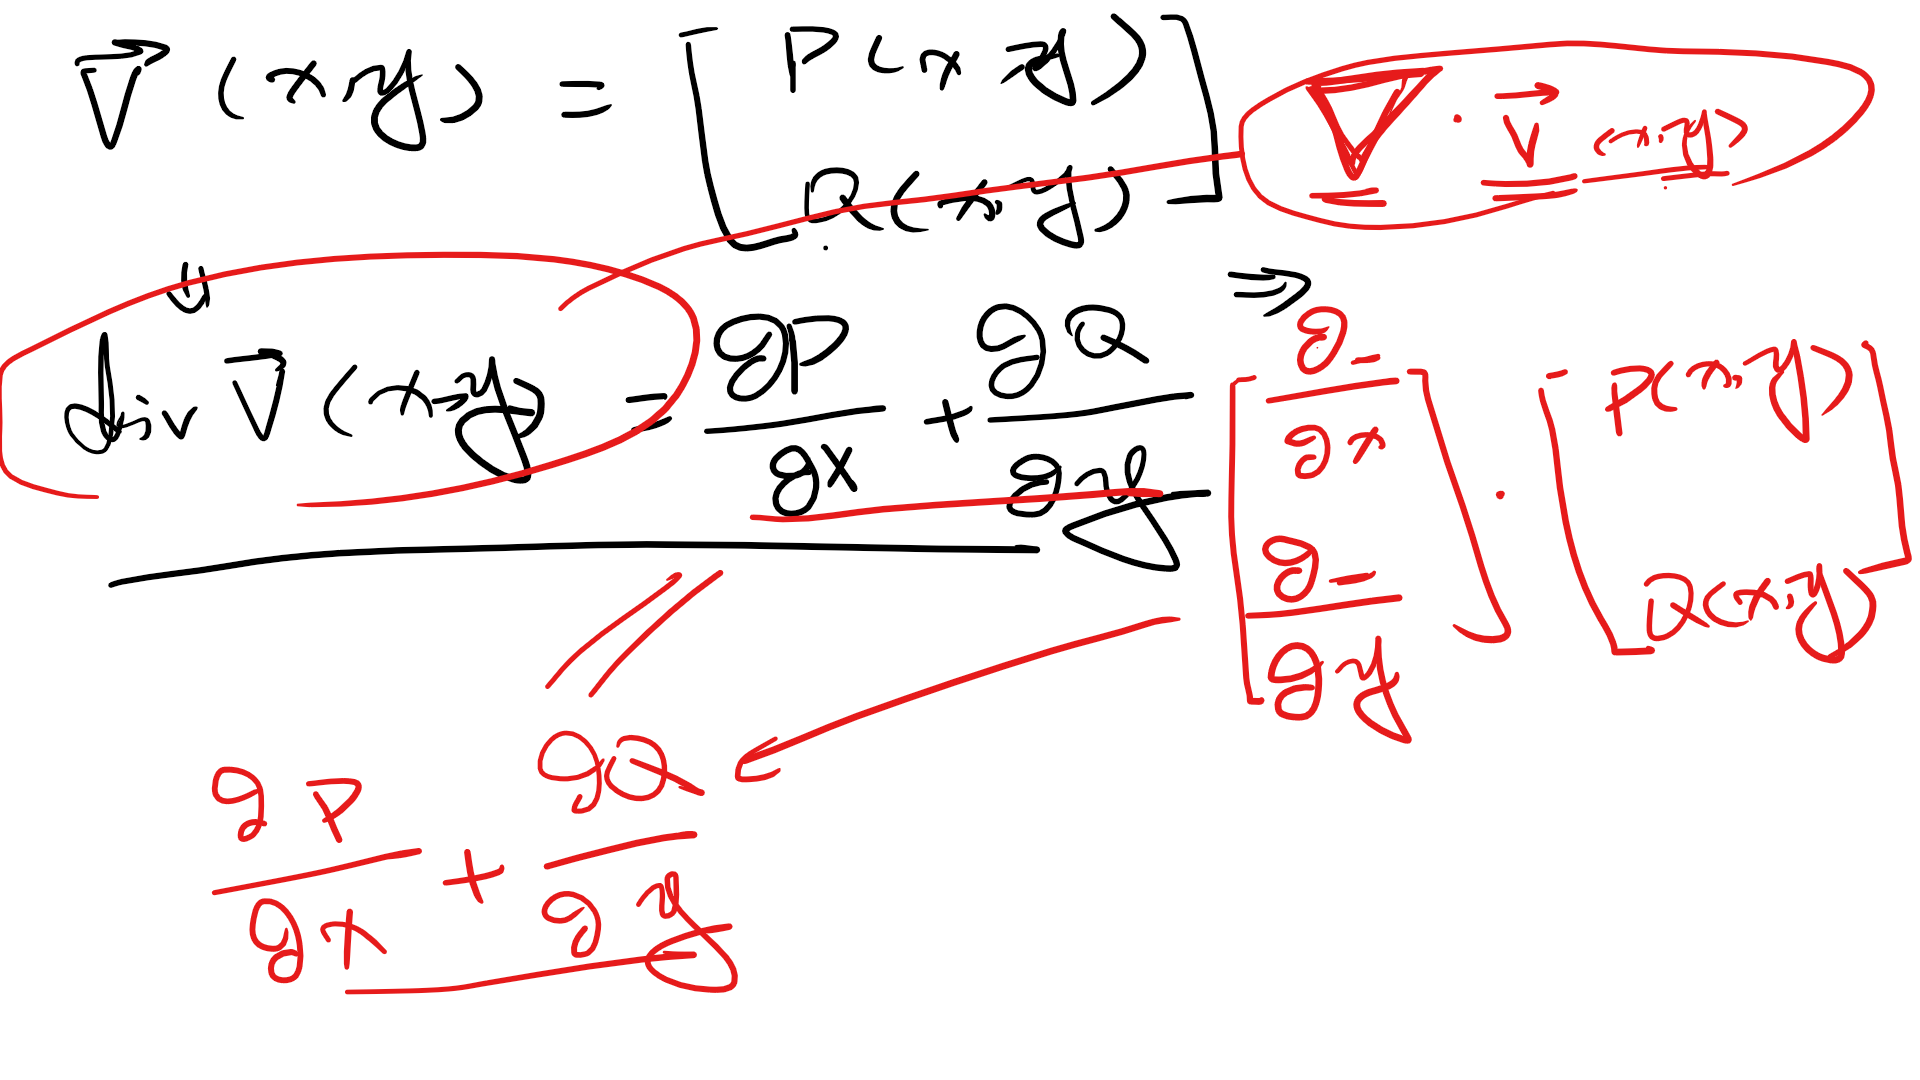 v⃗ (x,y) = [ P(x,y)
Q(x,y) ]
∇ · v⃗ (x,y)
⇓
div v⃗ (x,y) = ∂P/∂x + ∂Q/∂y
⇒
[ ∂_/∂x
∂_/∂y ] · [ P(x,y)
Q(x,y) ]
∂P/∂x + ∂Q/∂y